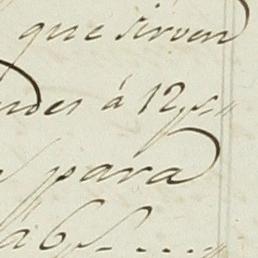 que sirven
ndes á 12 ps „
para
a 6 ps ....„